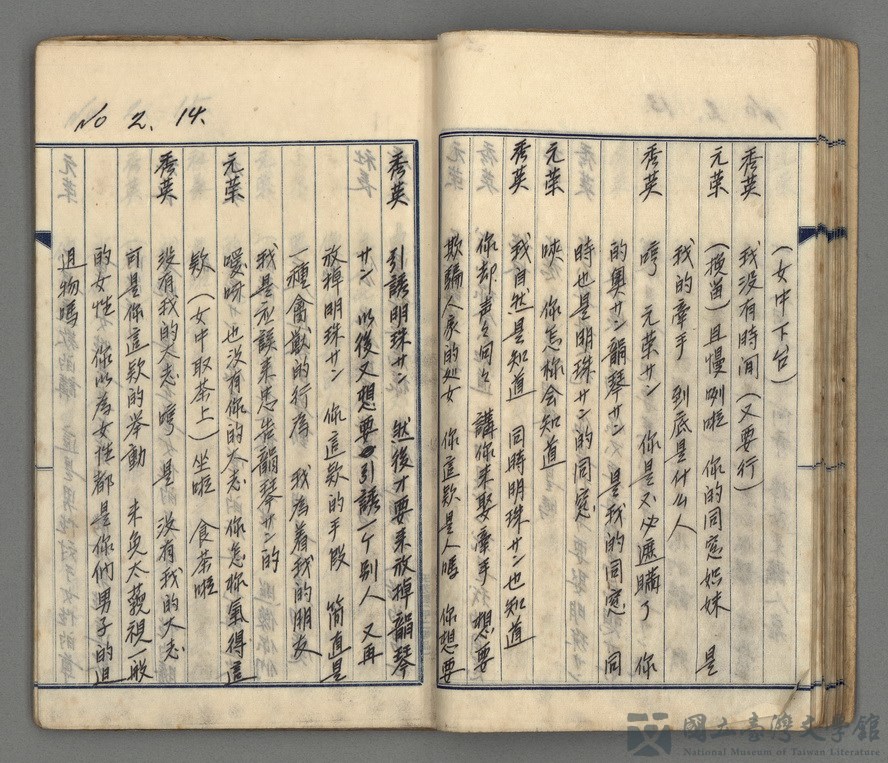 （女中下台）
秀英　我没有時间（又要行）
元葉　（挽留）且慢咧啦　你的同窓姉妹　是
我的牽手　到底是什么人
秀英　哼　元葉サン　你是不必遮瞞了　你
的奥サン韻琴サン　是我的同窓　同
時也是明珠サン的同窓
元葉　唉　你怎樣会知道
秀英　我自然是知道　同時明珠サン也知道
你却声々句々　講你未娶牽手　想要
欺騙人家的処女　你這款是人嗎　你想要
No 2. 14.
秀英　引誘明珠サン　然後才要來放掉韻琴
サン　以後又想要引誘一个別人　又再
放掉明珠サン　你這款的手段　簡直是
一種禽獣的行為　我為着我的朋友
我是應該來忠告韻琴サン的
元葉　噯呀　也没有你的大志　你怎樣氣得這
款（女中取茶上）坐啦　食茶啦
秀英　没有我的大志　哼　是　没有我的大志
可是你這款的举動　未免太藐視一般
的女性　你以為女性都是你们男子的
迌物嗎
國立臺灣文學館
National Museum of Taiwan Literature